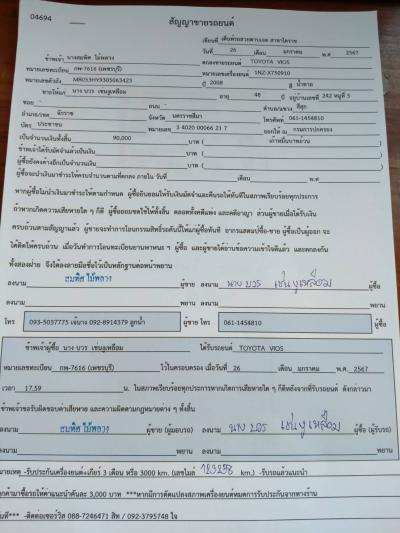 04694
สัญญาขายรถยนต์
เขียนที่ เต็นท์รถสวยตาแจด สาขาโคราช
วันที่ 26 เดือน มกราคม พ.ศ 2567
ข้าพเจ้า นางสมพิศ ไม้พลวง ตกลงขายรถยนต์ TOYOTA VIOS
หมายเลขทะเบียน กพ-7616 (เพชรบุรี) หมายเลขเครื่องยนต์ 1NZ-X750910
หมายเลขตัวถัง MR053HY9305063423 ปี 2008 สี น้ำตาล
ขายให้แก่ นาง บวร เช่นงูเหลือม อายุ 48 ปี อยู่บ้านเลขที่ 242 หมู่ที่ 5
ซอย - ถนน - ตำบล/แขวง สีสุก
อำเภอ/เขต จักราช จังหวัด นครราชสีมา โทรศัพท์ 061-1454810
บัตร ประชาชน หมายเลข 3 4020 00066 21 7 ออกให้ ณ กรมการปกครอง
เป็นจำนวนเงินทั้งสิ้น 90,000 บาท ( เก้าหมื่นบาทถ้วน )
ข้าพเจ้าได้รับมัดจำแล้วเป็นเงิน บาท ( )
ผู้ซื้อยังคงค้างอีกเป็นจำนวนเงิน บาท ( )
ผู้ซื้อจะนำเงินมาชำระให้ครบจำนวนตามที่ตกลง ภายใน วันที่ เดือน พ.ศ
หากผู้ซื้อไม่นำเงินมาชำระให้ตามกำหนด ผู้ซื้อยินยอมให้ริบเงินมัดจำและคืนรถให้ทันทีในสภาพเรียบร้อยทุกประการ
ถ้าหากเกิดความเสียหายใด ๆ ก็ดี ผู้ซื้อยอมชดใช้ให้ทั้งสิ้น ตลอดทั้งคดีแพ่ง และคดีอาญา ส่วนผู้ขายเมื่อได้รับเงิน
ครบถ้วนตามสัญญาแล้ว ผู้ขายจะทำการโอนกรรมสิทธิ์รถคันนี้ให้แก่ผู้ซื้อทันที
ทั้งสองฝ่าย จึงได้ลงลายมือชื่อไว้เป็นหลักฐานต่อหน้าพยาน
ลงนาม สมพิศ ไม้พลวง ผู้ขาย ลงนาม นาง บวร เช่นงูเหลือม ผู้ซื้อ
ลงนาม พยาน ลงนาม พยาน
โทร 093-5037775 เจ้นาง 092-8914379 ลูกน้ำ ผู้ขาย โทร 061-1454810 ผู้ซื้อ
ข้าพเจ้าผู้ซื้อ นาง บวร เช่นงูเหลือม ได้รับรถยนต์ TOYOTA VIOS
หมายเลขทะเบียน กพ-7616 (เพชรบุรี) ไว้ในครอบครอง เมื่อวันที่ 26 เดือน มกราคม พ.ศ. 2567
เวลา 17.59 น. ในสภาพเรียบร้อยทุกประการหากเกิดการเสียหายใด ๆ ก็ดีหลังจากที่รับรถยนต์ ดังกล่าวมา
ข้าพเจ้าขอรับผิดชอบค่าเสียหาย และความผิดตามกฎหมายต่าง ๆ ทั้งสิ้น
ลงนาม สมพิศ ไม้พลวง ผู้ขาย (ผู้มอบรถ) ลงนาม นาง บวร เช่นงูเหลือม ผู้ซื้อ (ผู้รับรถ)
ลงนาม พยาน ลงนาม พยาน
หมายเหตุ -รับประกันเครื่องยนต์เกียร์ 3 เดือน หรือ 3000 km. (เลขไมล์ 183258 km.) -รับรถแล้วแนะนำ
ลูกค้ามาซื้อรถให้ค่าแนะนำคันละ 3,000 บาท ***หากมีการดัดแปลงสภาพเครื่องยนต์หมดการรับประกันจากทางร้าน
ทันที*** -ติดต่อเซอร์วิส 088-7246471 สิท / 092-3795748 ใจ